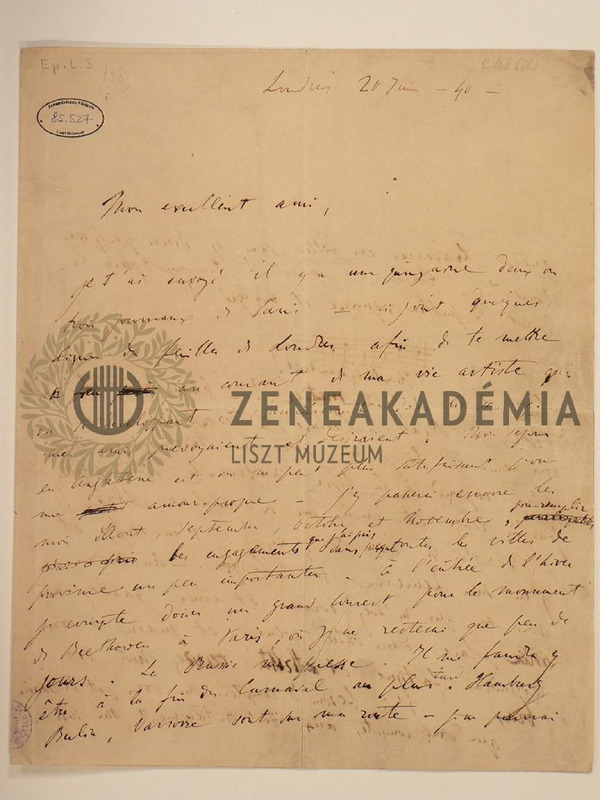 Ep.L.3
Zeneakadémia Budapest
85.527
Liszt Múzeum
Londres 20 Juin - 40 -
Mon excellent ami,
Je t'ai envoyé il y a une quinzaine deux ou
trois journaux de Paris - ci joint quelques
lignes des feuilles de Londres afin de te mettre
au courant de ma vie artiste qui
va
mes amis prévoyaient et désiraient. Mon séjour
en Angleterre est on ne peut plus satisfaisant pour
mon amour-propre - j'y passerai encore les
mois d'Août, Septembre Octobre et Novembre, pour remplir
des engagements que j'ai pris dans toutes les villes de
province un peu importantes. à l'entrée de l'hiver
je compte donner un grand concert pour le monument
de Beethoven à Paris, où je ne resterai que peu de
jours. La Russie me presse. Il me faudra y
être à la fin du Carnaval au plus tard. Hamburg
Berlin, Varsovie sont sur ma route - je ne pourrai
ZENEAKADÉMIA
LISZT MÚZEUM